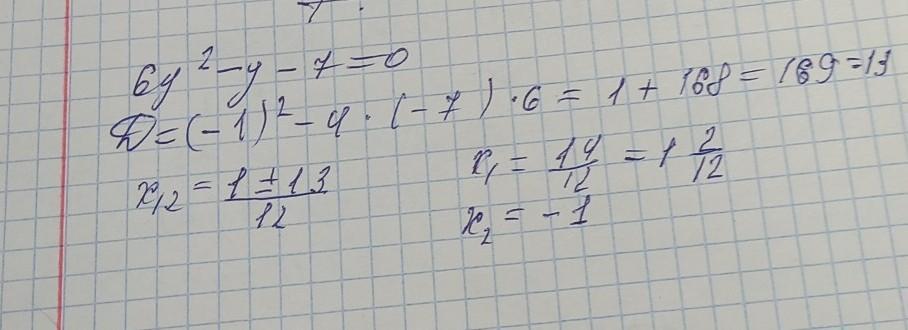 6y² - y - 7 = 0
D = (-1)² - 4 · (-7) · 6 = 1 + 168 = 169 = 13
x₁₂ = (1 ± 13)/12
x₁ = 14/12 = 1 2/12
x₂ = -1